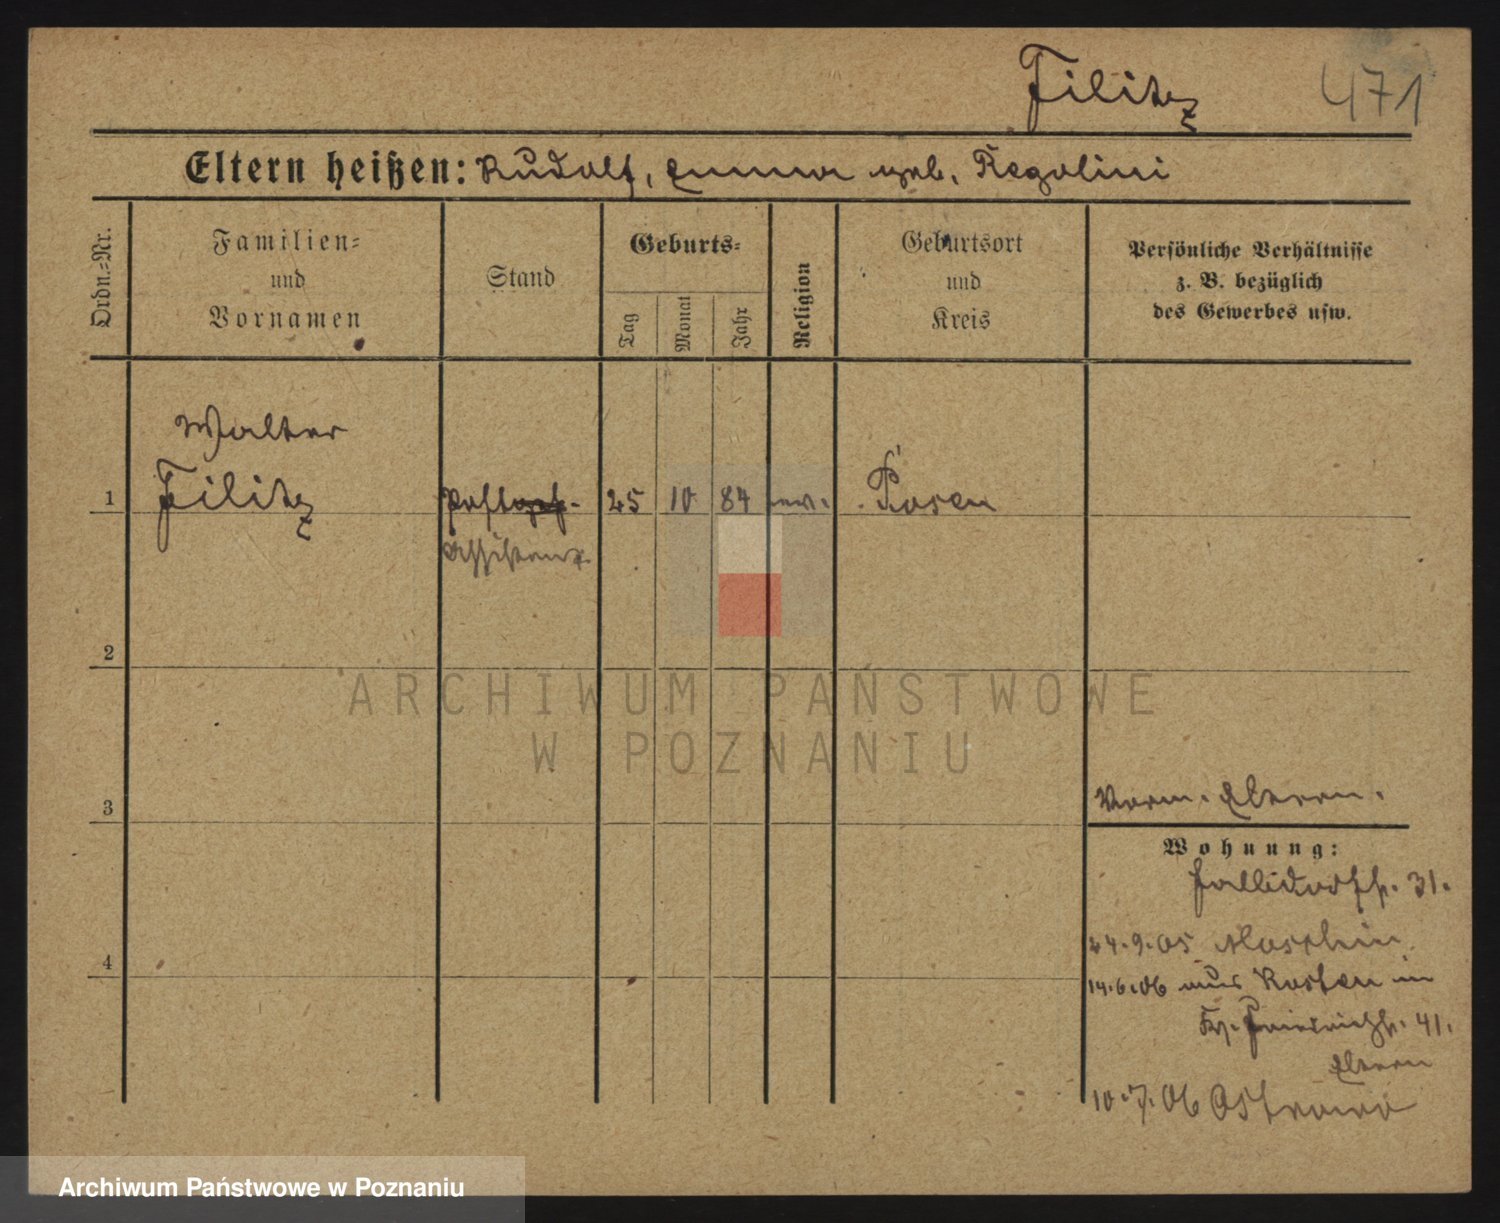 Filitz 471
Eltern heißen: Rudolf, Emma geb. Regolini
Ordn.=Nr.
Familien=
und
Vornamen
Stand
Geburts=
Tag
Monat
Jahr
Religion
Geburtsort
und
Kreis
Persönliche Verhältnisse
z. B. bezüglich
des Gewerbes usw.
Walter
1 Filitz Post 25 10 84 ev. Posen
Assistent
2
3
Vorm. Eltern.
Wohnung:
31.
24.9.05
4
14.6.06 aus Kosten in
41.
Eltern
10.7.06 Ostrowo
ARCHIWUM PAŃSTWOWE
W POZNANIU
Archiwum Państwowe w Poznaniu